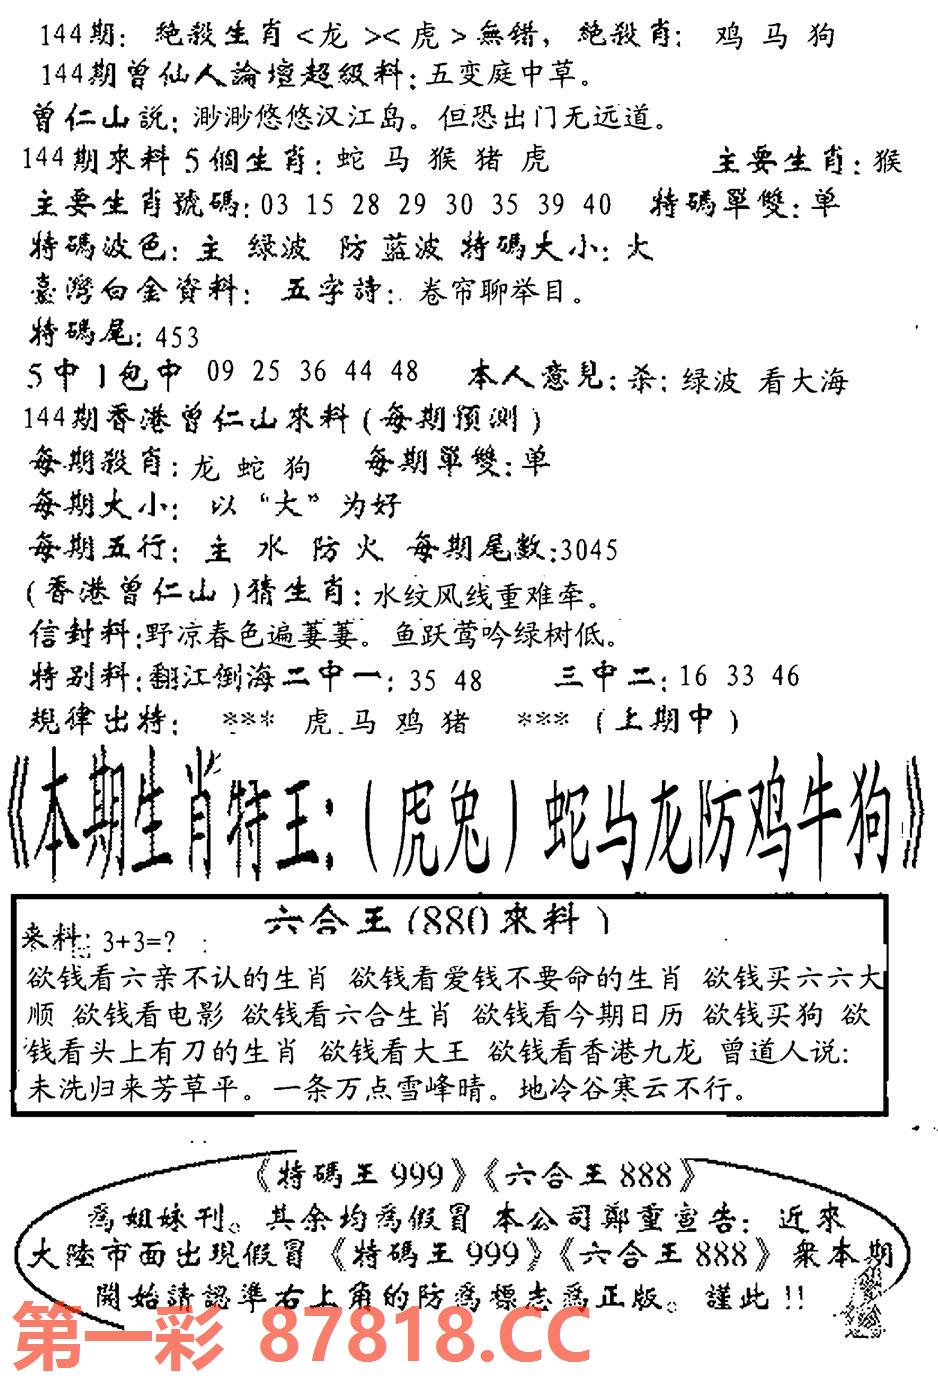 144期: 絶殺生肖<龙><虎>無错, 絶殺肖: 鸡 马 狗
144期曾仙人論壇超級料:五变庭中草。
曾仁山説:渺渺悠悠汉江岛。但恐出门无远道。
144期來料 5個生肖:蛇 马 猴 猪 虎 主要生肖:猴
主要生肖號碼:03 15 28 29 30 35 39 40 特碼單雙:单
特碼波色: 主 绿波 防 蓝波 特碼大小:大
臺灣白金資料: 五字詩: 卷帘聊举目。
特碼尾:453
5中1包中 09 25 36 44 48 本人意見:杀: 绿波 看大海
144期香港曾仁山來料(每期預测)
每期殺肖:龙 蛇 狗 每期單雙:单
每期大小: 以“大”为好
每期五行: 主 水 防 火 每期尾数:3045
(香港曾仁山)猜生肖:水纹风线重难牵。
信封料:野凉春色遍萋萋。鱼跃莺吟绿树低。
特别料:翻江倒海二中一:35 48 三中二:16 33 46
規律出特: *** 虎 马 鸡 猪 *** (上期中)
《本期生肖特王:(虎兔)蛇马龙防鸡牛狗》
六合王(880來料)
来料: 3+3=?
欲钱看六亲不认的生肖 欲钱看爱钱不要命的生肖 欲钱买六六大
顺 欲钱看电影 欲钱看六合生肖 欲钱看今期日历 欲钱买狗 欲
钱看头上有刀的生肖 欲钱看大王 欲钱看香港九龙 曾道人说:
未洗归来芳草平。一条万点雪峰晴。地冷谷寒云不行。
《特碼王999》《六合王888》
為姐妹刊。其余均為假冒 本公司鄭重宣告: 近來
大陸市面出現假冒《特碼王999》《六合王888》衆本期
開始請認準右上角的防為標志為正版。謹此!!
第一彩 87818.CC